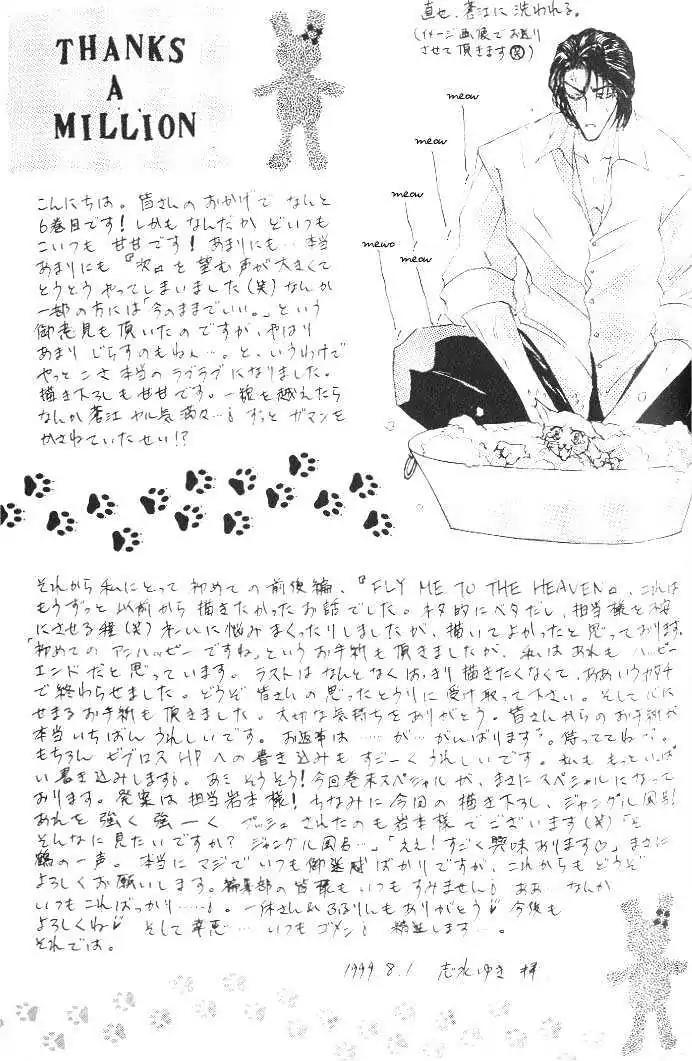 THANKS
A
MILLION
直せ、蒼江に洗われる。
(イメージ画像でお送り
させて頂きます(笑))
meow
meow
meow
meow
mewo
こんにちは。皆さんのおかげで なんと
6巻目です!しかも なんだか どいつも
こいつも 甘甘です! あまりにも…本当
あまりにも『次』を望む声が大きくて
とうとう やってしまいました(笑)なんか
一部の方には「今のままでいい。」という
御意見も頂いたのですが、やはり
あまり じらすのもねぇ…。と、いうわけで
やっとこさ本当のラブラブになりました。
描き下ろしも甘甘です。一線を越えたら
なんか 蒼江 ヤル気満々…! ずっと ガマンを
かさねていたせい!?
それから私にとって 初めての前後編、『FLY ME TO THE HEAVEN』、これは
もうずっと 以前から 描きたかったお話でした。ネタ的にベタだし、担当様を不安
にさせる程(笑)大いに悩みまくったりしましたが、描いてよかったと思っております。
「初めての アンハッピーですね」というお手紙も頂きましたが、私はあれも ハッピー
エンドだと思っています。ラストは なんとなく はっきり描きたくなくて、ああいうカタチ
で終わらせました。どうぞ皆さんの思ったとうりに受け取って下さい。そして心に
せまるお手紙も頂きました。大切な気持ちをありがとう。皆さんからのお手紙が
本当いちばん うれしいです。お返事は……が…がんばります。待っててね…。
もちろん ビブロスHPへの書き込みも すごーく うれしいです。私も もっといっぱ
い書き込みします。あ! そうそう!今回巻末スペシャルが、まさにスペシャルになって
おります。発案は担当岩本様! ちなみに今回の描き下ろし、ジャングル風呂!
あれを強く強ーく プッシュされたのも岩本様でございます(笑)「と
そんなに見たいですか? ジャングル風呂…」「ええ!すごく興味あります♡」まさに
鶴の一声。本当にマジでいつも御迷惑ばかりですが、これからもどうぞ
よろしくお願いします。編集部の皆様も、いつも すみません! ああ…なんか
いつもこればっかり……!。一休さん&ふるりんもありがとう♡ 今後も
よろしくね♡ そして 幸恵… いつも ゴメン! 精進します…。
それでは。
1999.8.1 志水ゆき 拝